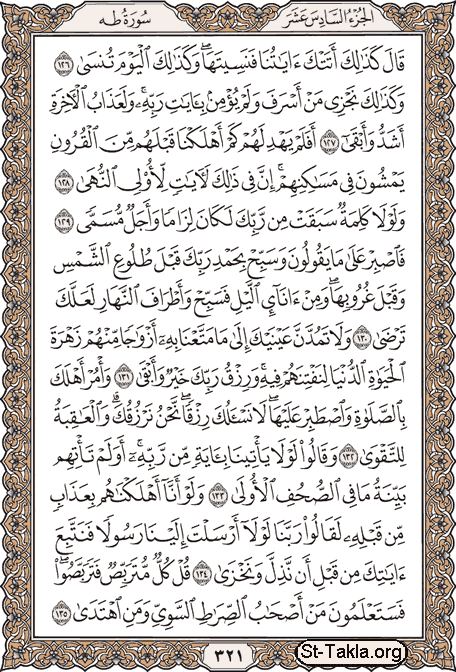 الجزء السادس عشر
سورة طه
قَالَ كَذَٰلِكَ أَتَتْكَ ءَايَٰتُنَا فَنَسِيتَهَا ۖ وَكَذَٰلِكَ ٱلْيَوْمَ تُنسَىٰ ١٢٦
وَكَذَٰلِكَ نَجْزِى مَنْ أَسْرَفَ وَلَمْ يُؤْمِنۢ بِـَٔايَٰتِ رَبِّهِۦ ۚ وَلَعَذَابُ ٱلْـَٔاخِرَةِ
أَشَدُّ وَأَبْقَىٰٓ ١٢٧ أَفَلَمْ يَهْدِ لَهُمْ كَمْ أَهْلَكْنَا قَبْلَهُم مِّنَ ٱلْقُرُونِ
يَمْشُونَ فِى مَسَٰكِنِهِمْ ۗ إِنَّ فِى ذَٰلِكَ لَـَٔايَٰتٍ لِّأُو۟لِى ٱلنُّهَىٰ ١٢٨
وَلَوْلَا كَلِمَةٌ سَبَقَتْ مِن رَّبِّكَ لَكَانَ لِزَامًا وَأَجَلٌ مُّسَمًّى ١٢٩
فَٱصْبِرْ عَلَىٰ مَا يَقُولُونَ وَسَبِّحْ بِحَمْدِ رَبِّكَ قَبْلَ طُلُوعِ ٱلشَّمْسِ
وَقَبْلَ غُرُوبِهَا ۖ وَمِنْ ءَانَآئِ ٱلَّيْلِ فَسَبِّحْ وَأَطْرَافَ ٱلنَّهَارِ لَعَلَّكَ
تَرْضَىٰ ١٣٠ وَلَا تَمُدَّنَّ عَيْنَيْكَ إِلَىٰ مَا مَتَّعْنَا بِهِۦٓ أَزْوَٰجًا مِّنْهُمْ زَهْرَةَ
ٱلْحَيَوٰةِ ٱلدُّنْيَا لِنَفْتِنَهُمْ فِيهِ ۚ وَرِزْقُ رَبِّكَ خَيْرٌ وَأَبْقَىٰ ١٣١ وَأْمُرْ أَهْلَكَ
بِٱلصَّلَوٰةِ وَٱصْطَبِرْ عَلَيْهَا ۖ لَا نَسْـَٔلُكَ رِزْقًا ۖ نَّحْنُ نَرْزُقُكَ ۗ وَٱلْعَٰقِبَةُ
لِلتَّقْوَىٰ ١٣٢ وَقَالُوا۟ لَوْلَا يَأْتِينَا بِـَٔايَةٍ مِّن رَّبِّهِۦٓ ۚ أَوَلَمْ تَأْتِهِم
بَيِّنَةُ مَا فِى ٱلصُّحُفِ ٱلْأُولَىٰ ١٣٣ وَلَوْ أَنَّآ أَهْلَكْنَٰهُم بِعَذَابٍ
مِّن قَبْلِهِۦ لَقَالُوا۟ رَبَّنَا لَوْلَآ أَرْسَلْتَ إِلَيْنَا رَسُولًا فَنَتَّبِعَ
ءَايَٰتِكَ مِن قَبْلِ أَن نَّذِلَّ وَنَخْزَىٰ ١٣٤ قُلْ كُلٌّ مُّتَرَبِّصٌ فَتَرَبَّصُوا۟ ۖ
فَسَتَعْلَمُونَ مَنْ أَصْحَٰبُ ٱلصِّرَٰطِ ٱلسَّوِىِّ وَمَنِ ٱهْتَدَىٰ ١٣٥
٣٢١
St-Takla.org